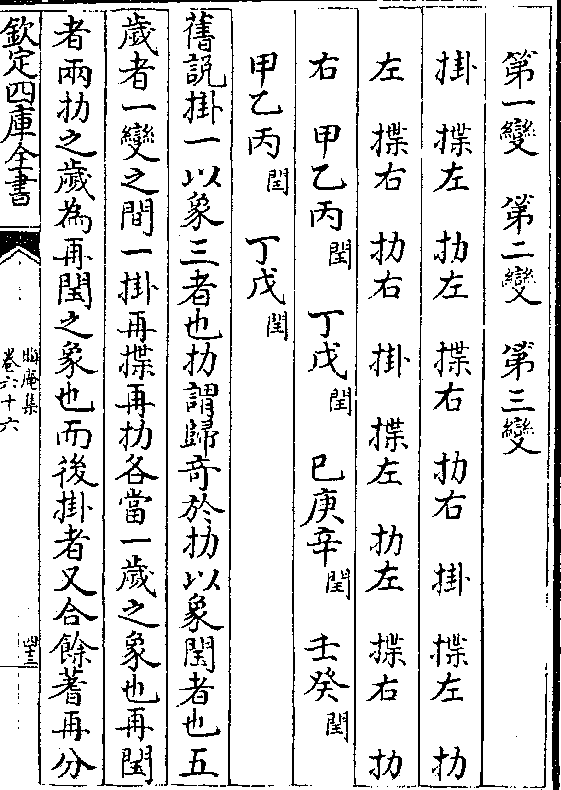 第一變　第二變　第三變
掛　揲左　扐左　揲右　扐右　掛　揲左　扐
左　揲右　扐右　掛　揲左　扐左　揲右　扐
右　甲乙丙閏　丁戊閏　已庚辛閏　壬癸閏
甲乙丙閏　丁戊閏
舊説掛一以象三者也扐謂歸竒於扐以象閏者也五
歲者一變之間一掛再揲再扐各當一歲之象也再閏
者兩扐之歲為再閏之象也而後掛者又合餘蓍再分
欽定四庫全書
晦庵集
卷六十六
四三